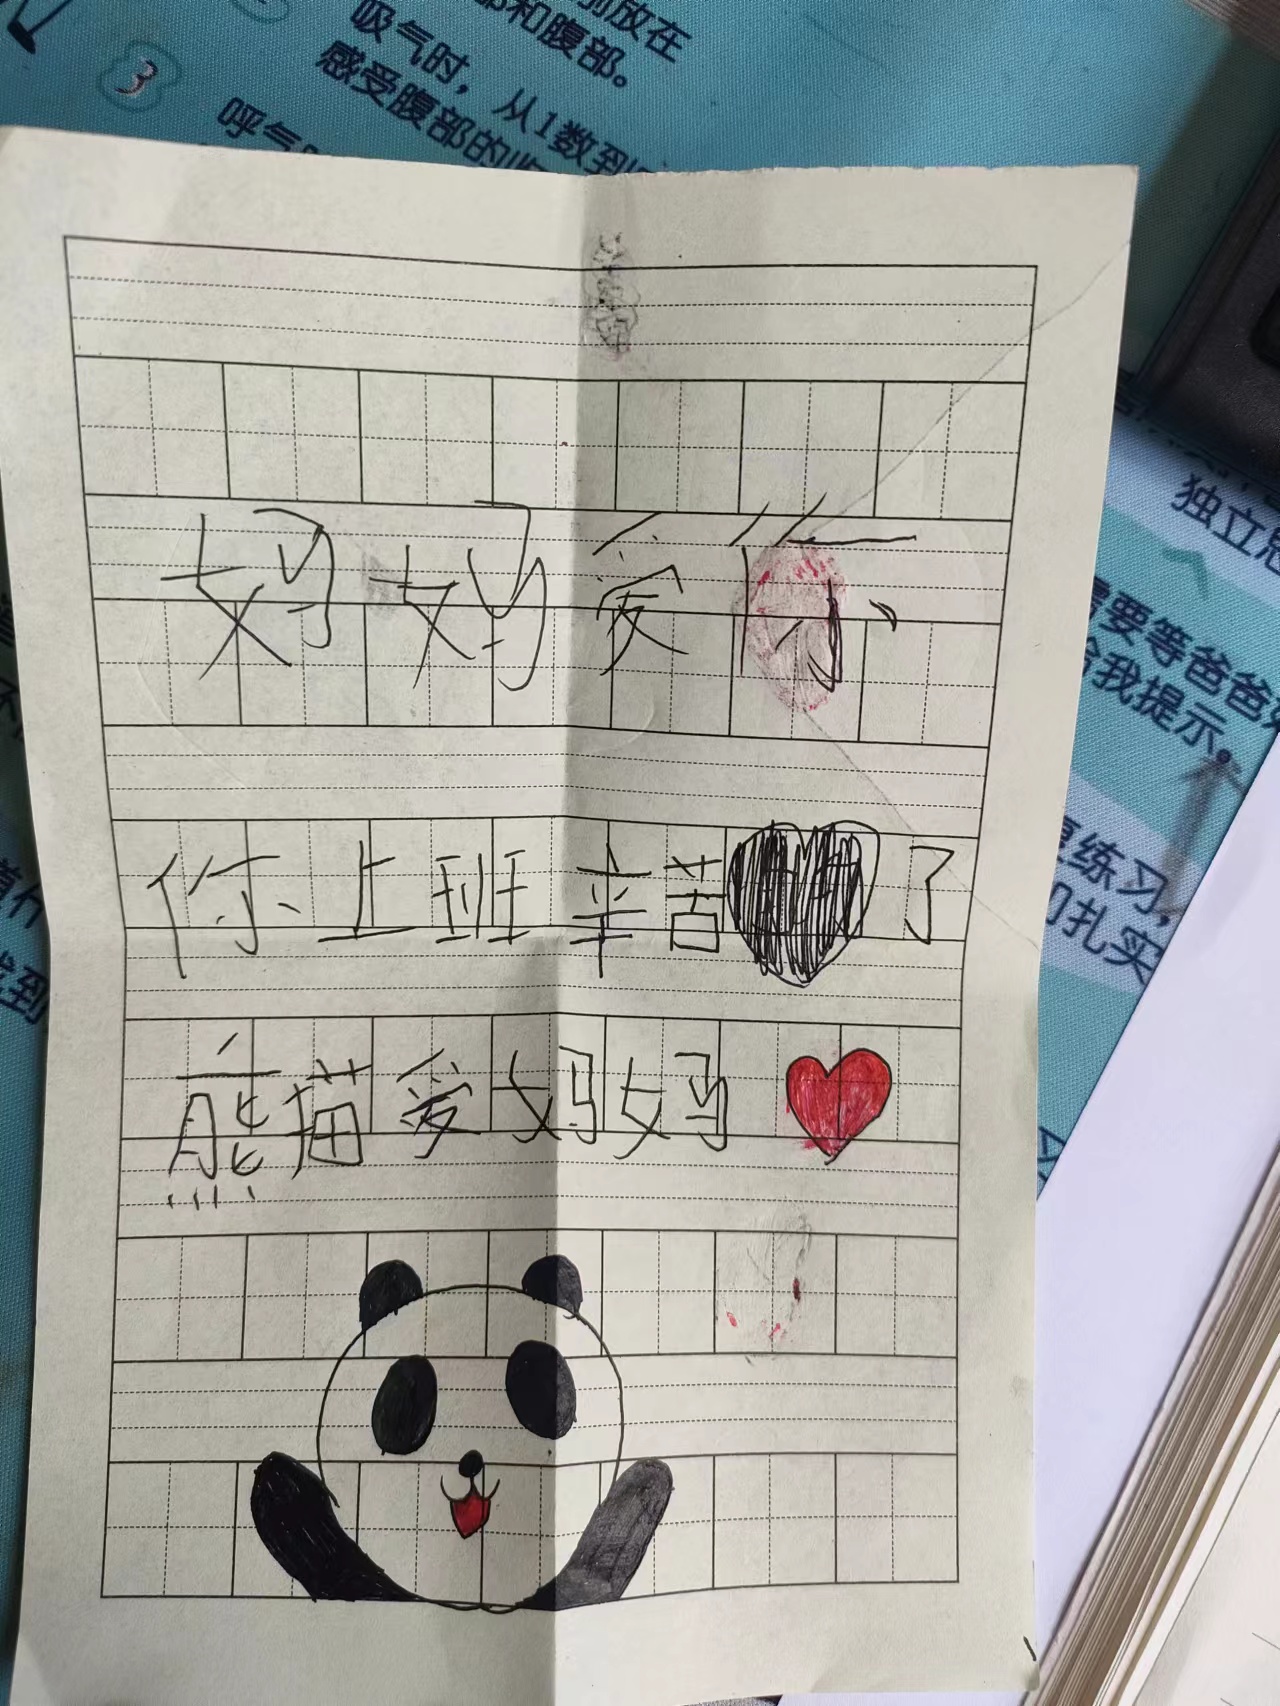 3
别放在
部和腹部。
吸气时，从1数到
感受腹部的
呼气
独立思
需要等爸爸妈
给我提示。
练习，
扎实
找到
妈妈爱你
你上班辛苦了
熊猫爱妈妈